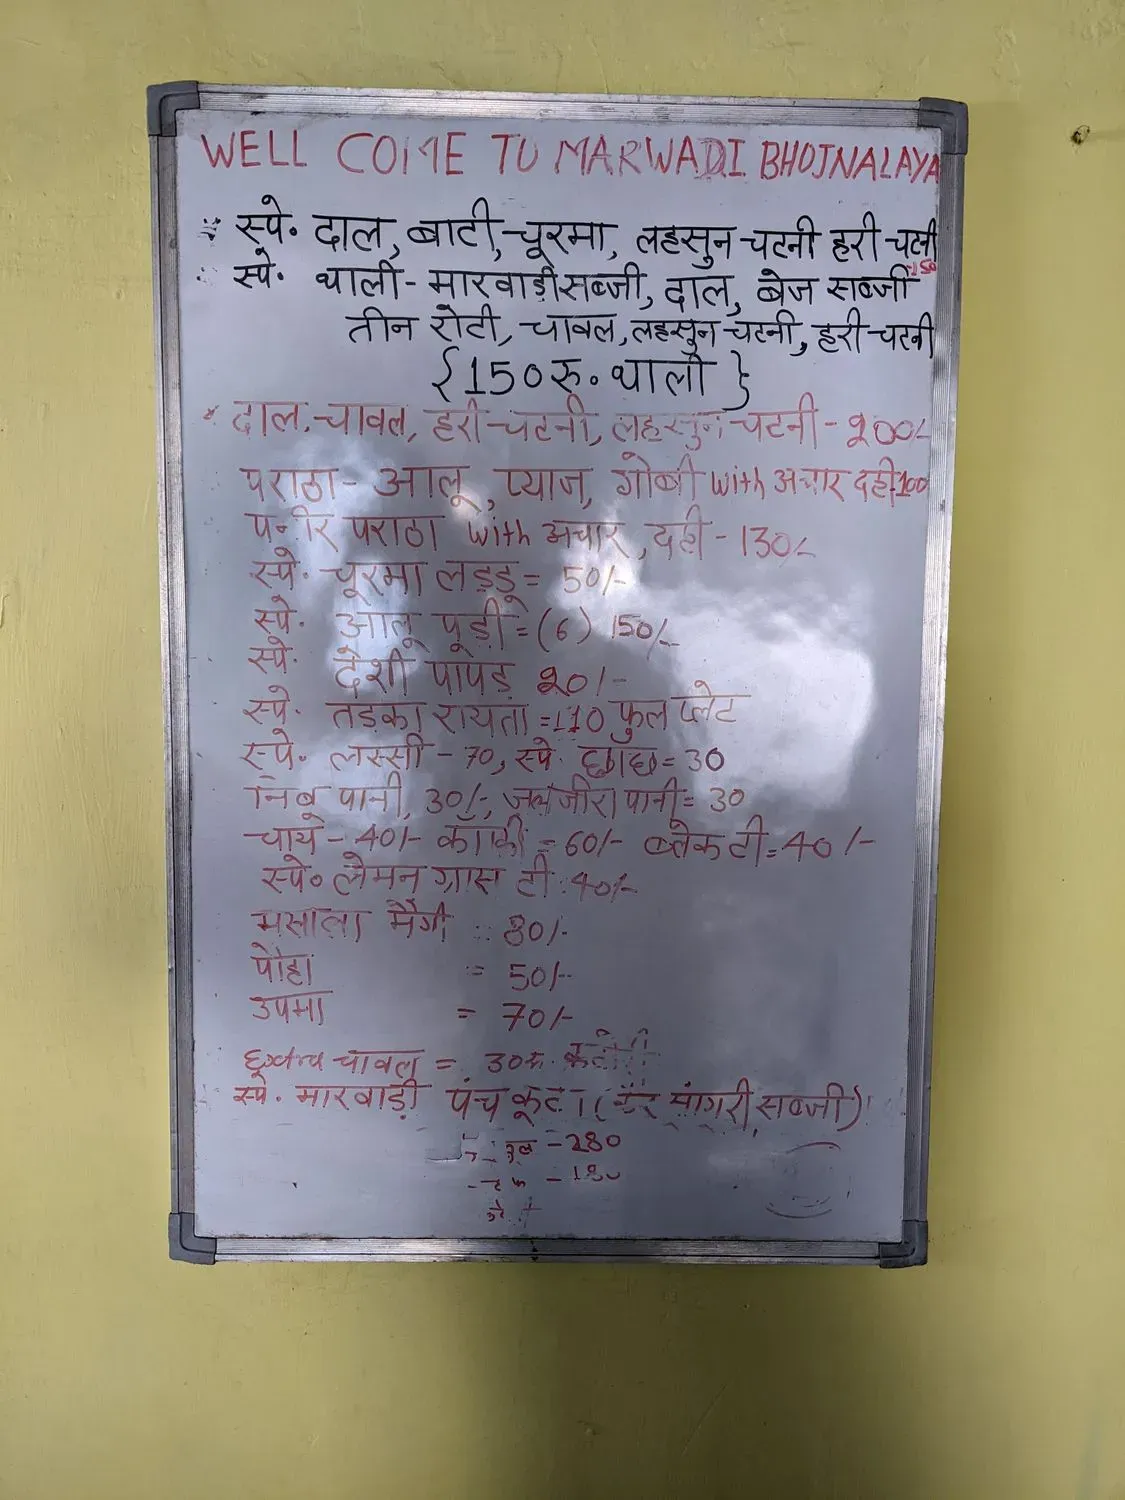 WELL COME TO MARWADI BHOJNALAYA
स्पे. दाल, बाटी, चूरमा, लहसुन चटनी हरी चटनी
स्पे. थाली - मारवाड़ी सब्जी, दाल, बेज सब्जी
तीन रोटी, चावल, लहसुन चटनी, हरी चटनी
{150 रु. थाली}
दाल, चावल, हरी चटनी, लहसुन चटनी - 200/-
पराठा - आलू, प्याज, गोबी with अचार दही 100
पनीर पराठा with अचार, दही - 130/-
स्पे. चूरमा लड्डू = 50/-
स्पे. आलू पूड़ी = (6) 150/-
स्पे. देशी पापड़ 20/-
स्पे. तड़का रायता = 110 फुल प्लेट
स्पे. लस्सी - 70, स्पे. छाछ = 30
निबु पानी, 30/-, जलजीरा पानी = 30
चाये - 40/- काफी = 60/- ब्लेक टी = 40/-
स्पे. लेमन ग्रास टी 40/-
मसाला मैगी = 80/-
पोहा = 50/-
उपमा = 70/-
चावल = 30रु.
स्पे. मारवाड़ी पंचकूटा (केर सांगरी सब्जी)
- 280